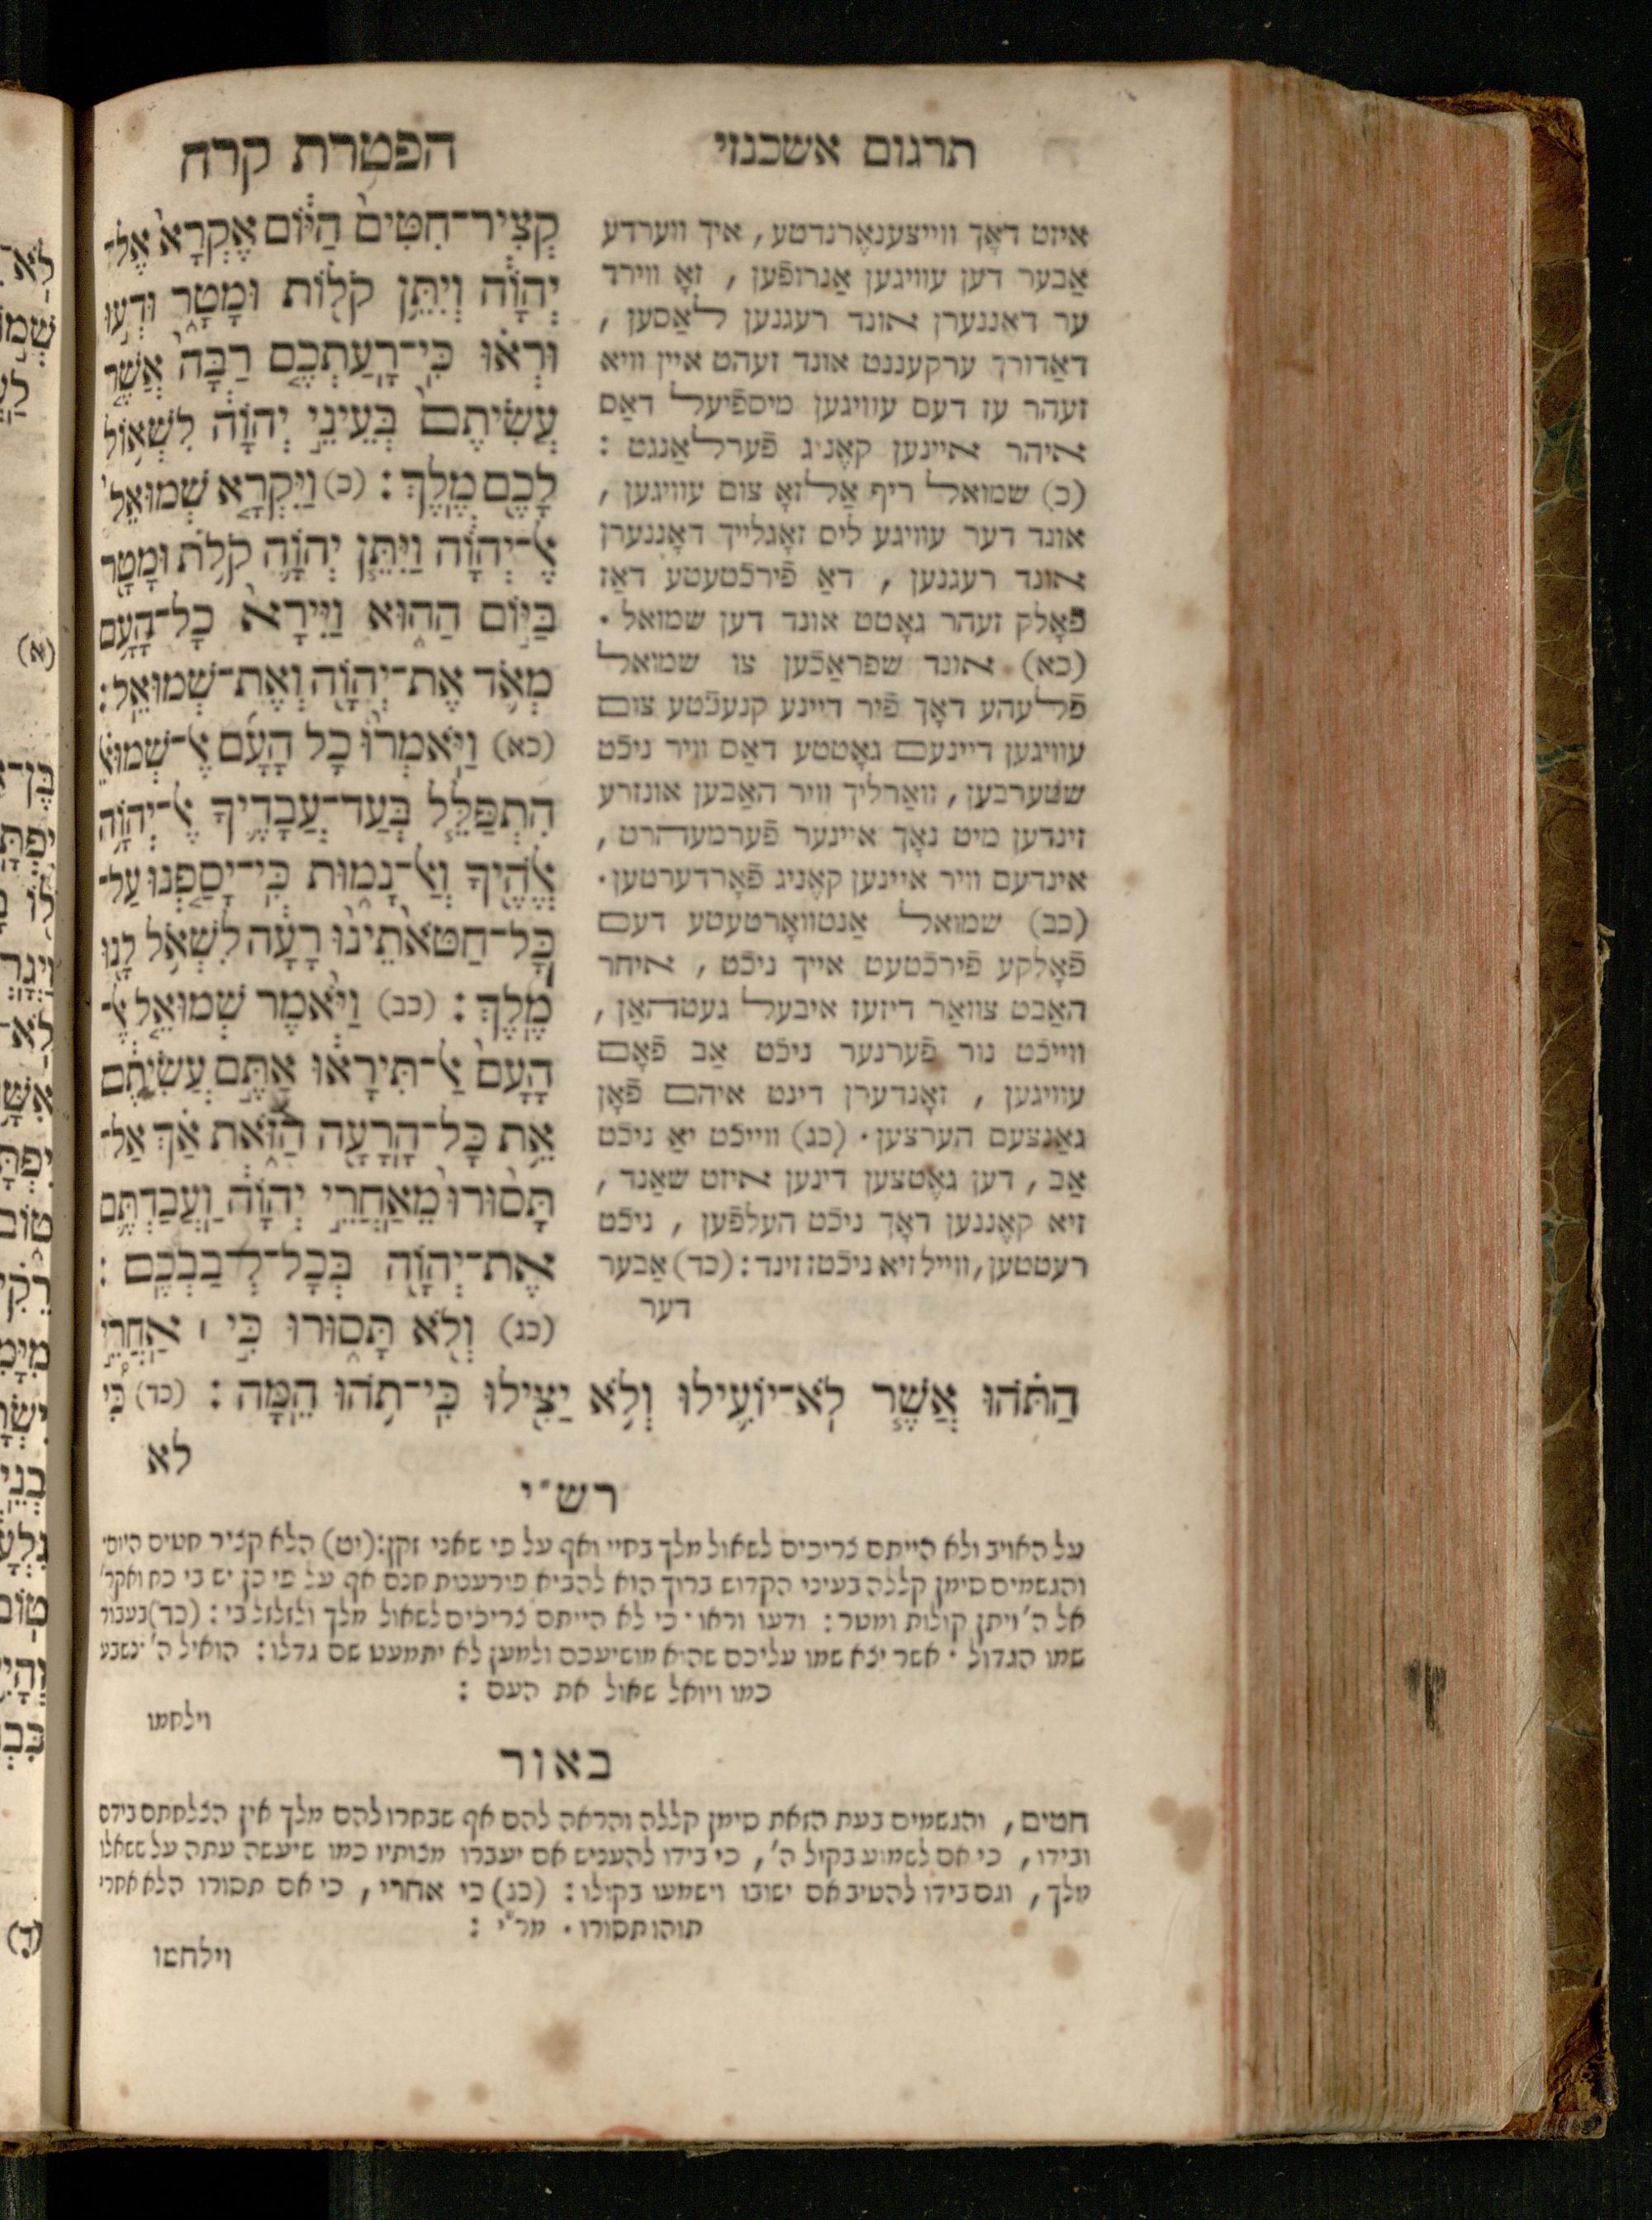 תרגום אשכנזי
הפטרת קרח
איזט דאָך ווייצענאֶרנדטע, איך ווערדע
אַבער דען עוויגען אַנרופֿען, זאָ ווירד
ער דאננערן אונד רעגנען לאַסען,
דאַדורך ערקעננט אונד זעהט איין וויא
זעהר עז דעם עוויגען מיספֿיעל דאַס
איהר איינען קאֶניג פֿערלאַנגט:
(כ) שמואל ריף אַלזאָ צום עוויגען,
אונד דער עוויגע ליס זאָגלייך דאָננערן
אונד רעגנען, דאַ פֿירכֿטעטע דאַז
פֿאָלק זעהר גאָטט אונד דען שמואל.
(כא) אונד שפראַכֿען צו שמואל
פֿלעהע דאָך פֿיר דיינע קנעכֿטע צום
עוויגען דיינעם גאָטטע דאַס וויר ניכֿט
שטערבען, וואַרליך וויר האַבען אונזרע
זינדען מיט נאָך איינער פֿערמעהרט,
אינדעם וויר איינען קאֶניג פֿאָרדערטען.
(כב) שמואל אַנטוואָרטעטע דעם
פֿאָלקע פֿירכֿטעט אייך ניכֿט, איהר
האַבט צוואַר דיזעז איבעל געטהאַן,
ווייכֿט נור פֿערנער ניכֿט אַב פֿאָם
עוויגען, זאָנדערן דינט איהם פֿאָן
גאַנצעם הערצען. (כג) ווייכֿט יאַ ניכֿט
אַב, דען גאֶטצען דינען איזט שאַנד,
זיא קאֶננען דאָך ניכֿט העלפֿען, ניכֿט
רעטטען, ווייל זיא ניכֿטז זינד: (כד) אַבער
דער
קְצִיר־חִטִּים הַיּוֹם אֶקְרָא אֶל־
יְהוָֹה וְיִתֵּן קֹלוֹת וּמָטָר וּדְעוּ
וּרְאוּ כִּי־רָעַתְכֶם רַבָּה אֲשֶׁר
עֲשִׂיתֶם בְּעֵינֵי יְהוָֹה לִשְׁאוֹל
לָכֶם מֶלֶךְ: (כ) וַיִּקְרָא שְׁמוּאֵל
אֶל־יְהוָֹה וַיִּתֵּן יְהוָֹה קֹלֹת וּמָטָר
בַּיּוֹם הַהוּא וַיִּירָא כָל־הָעָם
מְאֹד אֶת־יְהוָֹה וְאֶת־שְׁמוּאֵל:
(כא) וַיֹּאמְרוּ כָל הָעָם אֶל־שְׁמוּאֵל
הִתְפַּלֵּל בְּעַד־עֲבָדֶיךָ אֶל־יְהוָֹה
אֱלֹהֶיךָ וְאַל־נָמוּת כִּי־יָסַפְנוּ עַל־
כָּל־חַטֹּאתֵינוּ רָעָה לִשְׁאֹל לָנוּ
מֶלֶךְ: (כב) וַיֹּאמֶר שְׁמוּאֵל אֶל־
הָעָם אַל־תִּירָאוּ אַתֶּם עֲשִׂיתֶם
אֵת כָּל־הָרָעָה הַזֹּאת אַךְ אַל־
תָּסוּרוּ מֵאַחֲרֵי יְהוָֹה וַעֲבַדְתֶּם
אֶת־יְהוָֹה בְּכָל־לְבַבְכֶם:
(כג) וְלֹא תָּסוּרוּ כִּי ׀ אַחֲרֵי
הַתֹּהוּ אֲשֶׁר לֹא־יוֹעִילוּ וְלֹא יַצִּילוּ כִּי־תֹהוּ הֵמָּה: (כד) כִּי
לא
רש״י
על האויב ולא הייתם צריכים לשאול מלך בחיי ואף על פי שאני זקן: (יט) הלא קציר חטים היום.
והגשמים סימן קללה בעיני הקדוש ברוך הוא להביא פורענות חנם אף על פי כן יש בי כח ואקר׳
אל ה׳ ויתן קולות ומטר: ודעו וראו. כי לא הייתם צריכים לשאול מלך ולזלזל בי: (כד) בעבור
שמו הגדול. אשר יצא שמו עליכם שהוא מושיעכם ולמען לא יתמעט שם גדלו: הואיל ה׳. נשבע
כמו ויואל שאול את העם:
וילחמו
באור
חטים, והגשמים בעת הזאת סימן קללה והראה להם אף שבחרו להם מלך אין הצלחתם בידם
ובידו, כי אם לשמוע בקול ה׳, כי בידו להעניש אם יעברו מצותיו כמו שיעשה עתה על ששאלו
מלך, וגם בידו להטיב אם ישובו וישמעו בקולו: (כג) כי אחרי, כי אם תסורו הלא אחרי
תוהו תסורו. מר״י:
וילחמו